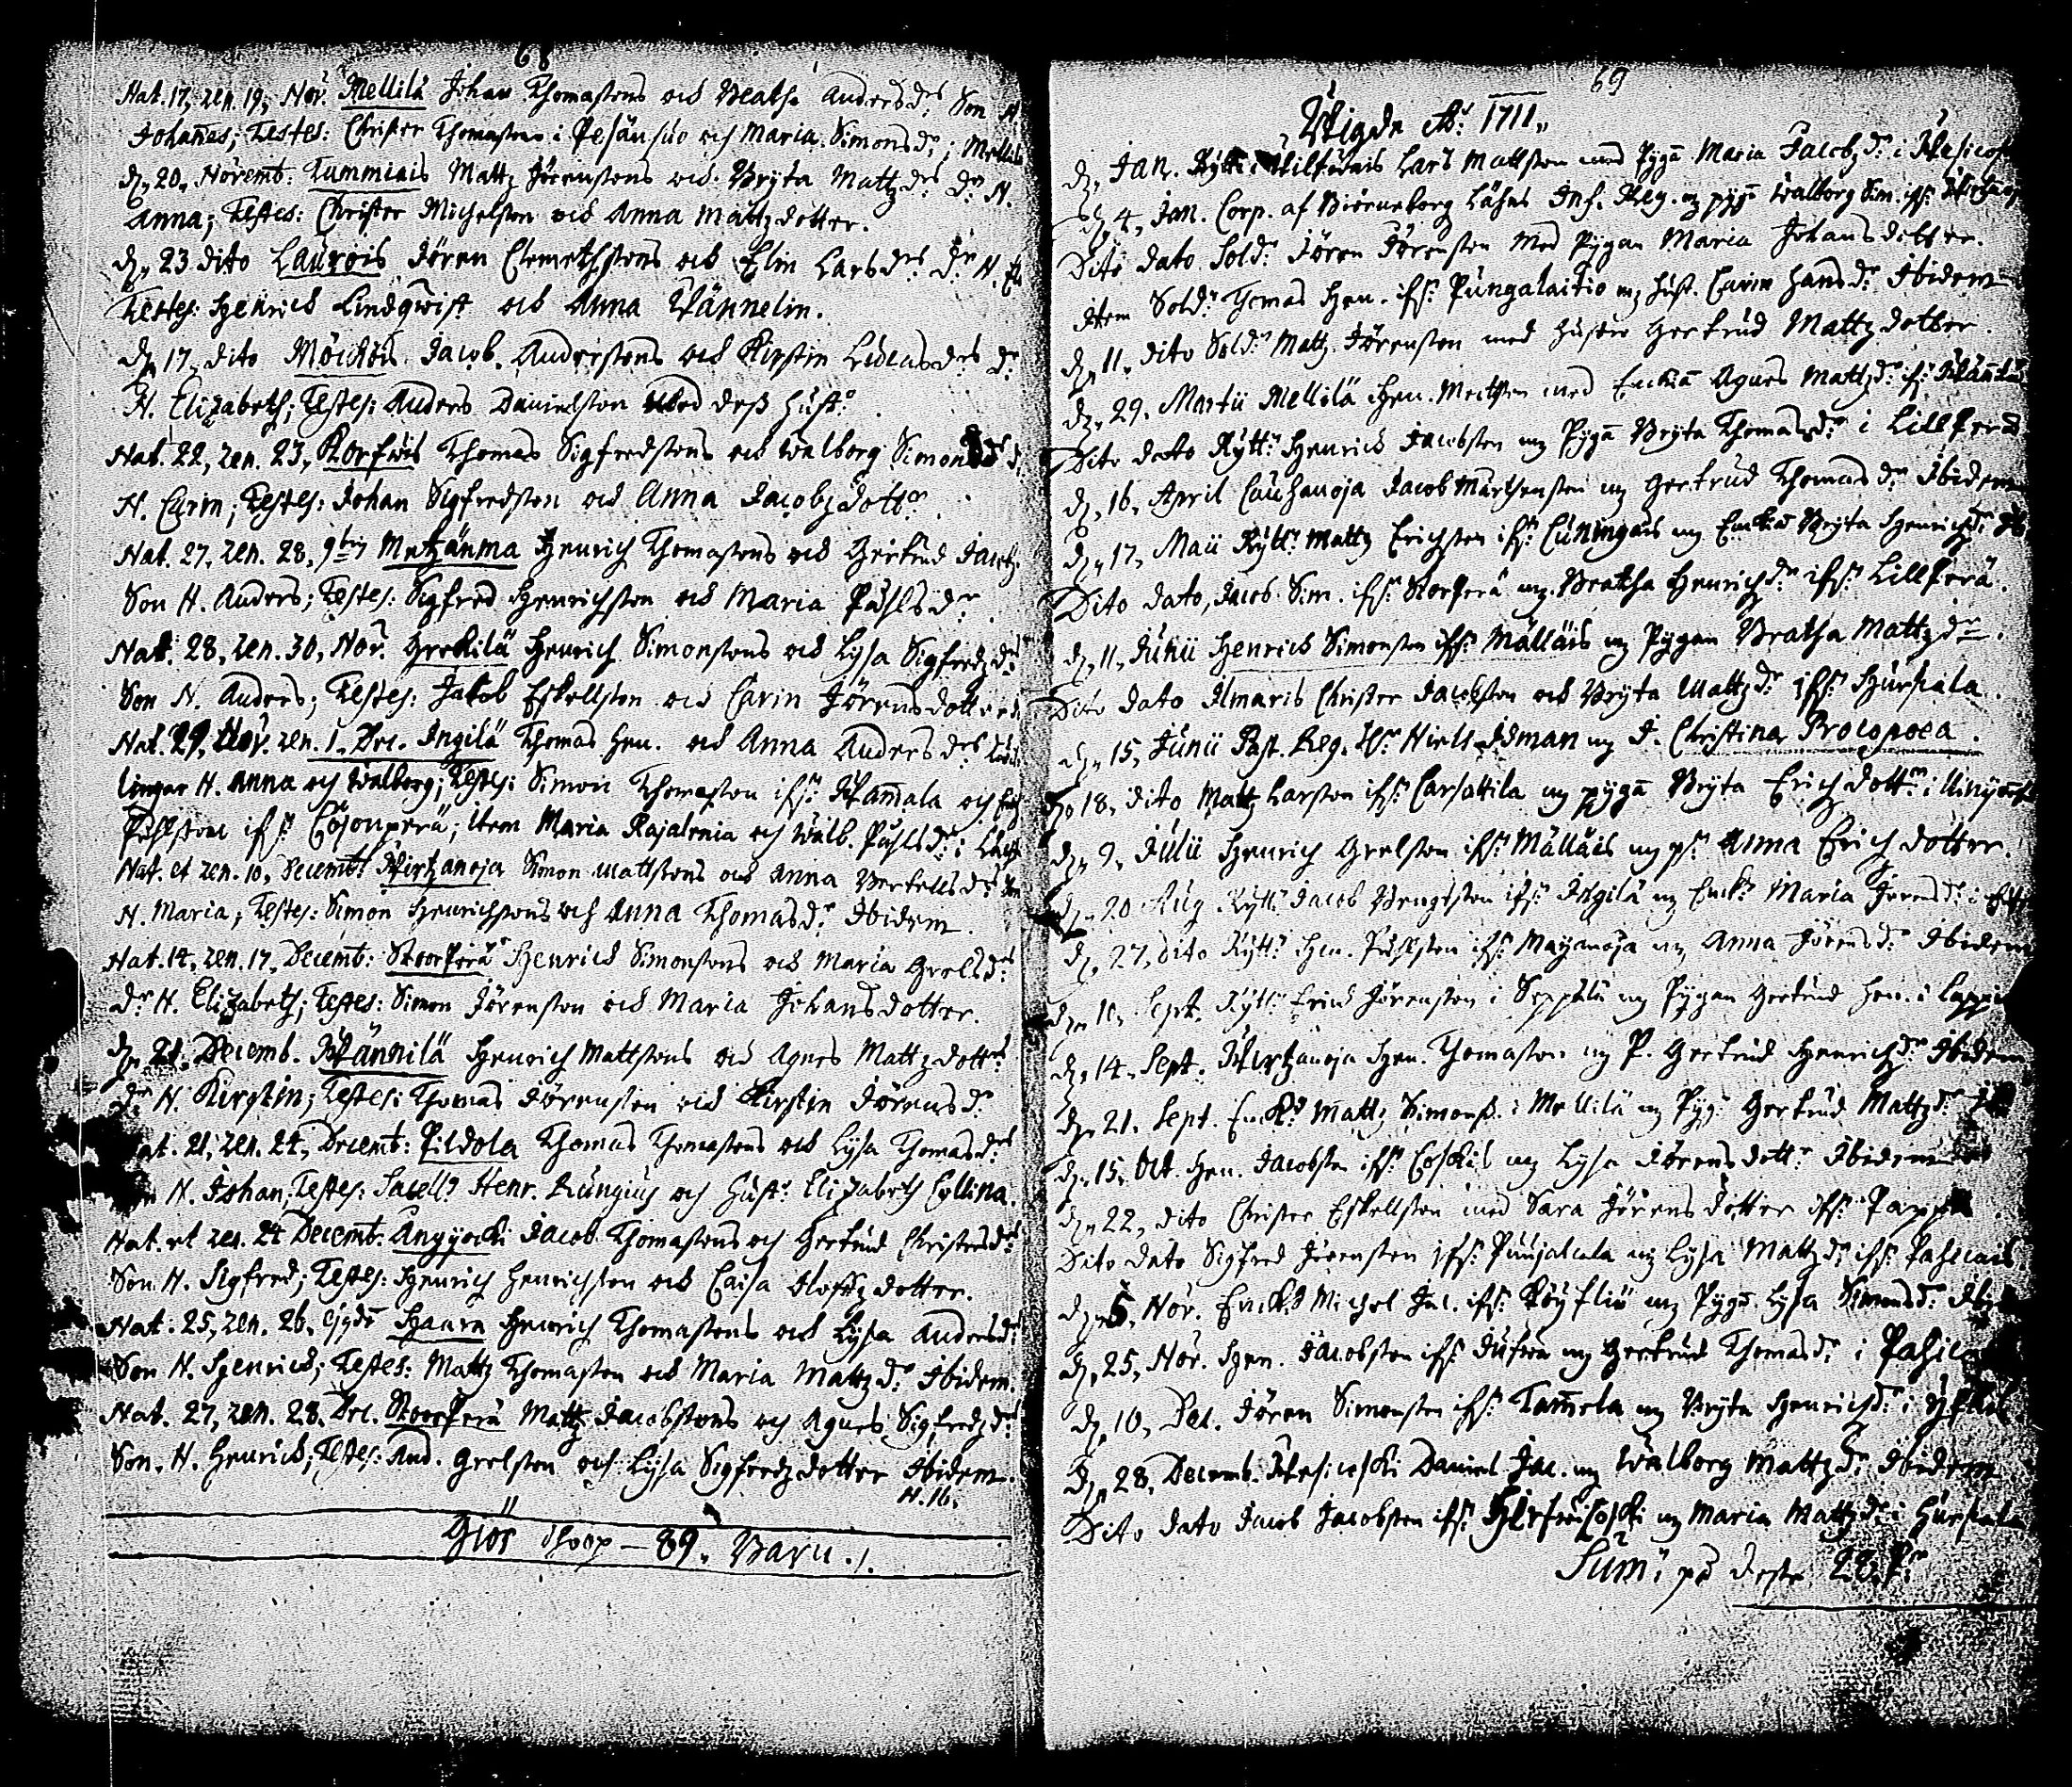 68
Nat. 17, ren. 19, Nov. Mellilä Johan Thomassons och Beatha Andersd:s Son N.
Johannes; Testes: Christer Thomasson i Pesänsuo och Maria Simonsd:r i Mellilä
d. 20. Novemb: Tummiais Mattz Jörensons och Bryta Mattzd:rs D:r N.
Anna; Testes: Christer Michelsson och Anna Mattzdotter.
d. 23 dito Laurois Jören Clemethssons och Elin Larsd:rs D:r N.
Testes: Henrich Lindqwist och Anna Wännelin.
d. 17. dito Möickois Jacob Anderssons och Kirstin d:rs D:r
N. Elizabeth; Testes: Anders Danielsson med dess hust:
Nat. 22, ren. 23, Korfwis Thomas Sigfredssons och Walborg Simonsd:s
N. Carin; Testes: Johan Sigfredsson och Anna Jacobzdott:r
Nat. 27, ren. 28, 9bris Metzänmaa Henrich Thomassons och Gertrud Jacobz.
Son N. Anders; Testes: Sigfred Henrichsson och Maria Påhlsd:r
Nat. 28, ren. 30, Nov. Grekilä Henrich Simonssons och Lysa Sigfredzd:s
Son N. Anders; Testes: Jakob Eskellsson och Carin Jörensdotter
Nat. 29, Nov. ren. 1. Dec. Ingilä Thomas Hen. och Anna Andersd:rs
lingar N. Anna och Walborg; Testes: Simon Thomasson ifr: Wammala och
Påhlsson ifr: Cojonperä; item Maria Rajalenia och Walb. Påhlsd:r i
Nat. et ren. 10. Decemb: Wirtzanoja Simon Mattssons och Anna Bertellsd:rs
N. Maria; Testes: Simon Henrichssons och Anna Thomasd:r Ibidem.
Nat. 14, ren. 17, Decemb: Stoorperä Henrich Simonssons och Maria Grelsd:s
D:r N. Elizabeth; Testes: Simon Jörensson och Maria Johansdotter.
d. 21. Decemb. Wännilä Henrich Mattssons och Agnes Mattzdotters
D:r N. Kirstin; Testes: Thomas Jörensson och Kirstin Jörensd:r
Nat. 21, ren. 24, Decemb: Pildola Thomas Thomassons och Lysa Thomasd:s
Son N. Johan; Testes: Sacell: Henr. Rungius och Hust: Elizabeth Collina
Nat. et ren. 24 Decemb. Anyjocki Jacob Thomassons och Gertrud Christersd:s
Son N. Sigfred; Testes: Henrich Henrichsson och Caisa Oloffzdotter.
Nat. 25, ren. 26, ejusd. Haura Henrich Thomassons och Lysa Andersd:s
Son N. Henrich; Testes: Mattz Thomasson och Maria Mattzd:r Ibidem.
Nat. 27, ren. 28. Dec. Stoorperä Mattz Jacobssons och Agnes Sigfredzd:s
Son. N. Henrich; Testes: And. Grelsson och Lysa Sigfredzdotter Ibidem.
N. 16.
Giör ihoop — 89. Barn ./.
69
Wigde A:o 1711.
d. Jan. Rytt: i Lars Mattsson med Pyga Maria Jacobzd:r i
d. 4. Jan. Corp. af Biörneborg Lähns Inf. Reg. mz pyga Walborg Sim. ifr: Wirtzanoja
Dito dato Sold: Jören Jörensson med Pygan Maria Johansdotter.
item Sold:r Thomas Hen. ifr: Pungalaitio mz hust. Carin Hansd:r Ibidem
d. 11. dito Sold:r Mattz Jörensson med hustru Gertrud Mattzdotter
d. 29. Martii Mellilä Hen. Matthss. med Enckia Agnes Mattzd:r ifr:
Dito dato Rytt: Henrich Jacobsson mz Pyga Bryta Thomasd:r i Lillperä
d. 16. April Cauhanoja Jacob Marthensson mz Gertrud Thomasd:r Ibidem
d. 17. Maii Rytt: Mattz Erichsson ifr: Cuningais mz Enckia Bryta Henrichzd:r
Dito dato, Jacob Sim. ifr: Storperä mz Beatha Henrichzd:r ifr: Lillperä.
d. 11. Junii Henrich Simonsson ifr: Mälläis mz Pygan Beatha Mattzd:r
Dito dato Ilmaris Christer Jacobsson och Bryta Mattzd:r ifr: Hurskala.
d. 15. Junii Past. Reg. H:r Niels Idman mz J. Christina Procopoea.
d. 18. dito Mattz Larsson ifr: Carsattila mz pyga Bryta Erichdott:r i
d. 9. Julii Henrich Grelsson ifr: Mälläis mz p: Anna Erichdotter.
d. 20 Aug Rytt: Jacob Bengtsson ifr: Ingilä mz Enck: Maria Jörensd:r i
d. 27. dito Rytt: Hen. Påhlsson ifr: Mayanoja mz Anna Jörensd:r Ibidem
d. 10. Sept. Rytt: Erich Jörensson i Seppälä mz Pygan Gertrud Hen. i Lappi
d. 14. Sept. Wirtzanoja Hen. Thomasson mz P. Gertrud Henrichzd:r Ibidem
d. 21. Sept. Enckl: Mattz Simonss. i Mellilä mz Pyg: Gertrud Mattzd:r
d. 15. Oct. Hen. Jacobsson ifr: Coskis mz Lysa Jörensdott:r Ibidem
d. 22. dito Christer Eskellsson med Sara Jörensdotter ifr:
Dito dato Sigfred Jörensson ifr: Punjalcala mz Lysa Mattzd:r ifr:
d. 5. Nov. Enckl: Michel Jac. ifr: mz Pyga Lysa Simonsd:r
d. 25. Nov. Hen. Jacobsson ifr: mz Gertrud Thomasd:r i
d. 10. Dec. Jören Simonsson ifr: Tammela mz Bryta Henrichzd:r i
d. 28. Decemb. Daniel Jac. mz Walborg Mattzd:r Ibidem
Dito dato Jacob Jacobsson ifr: mz Maria Mattzd:r i Hurskala
Sum: på desse 28. P:r